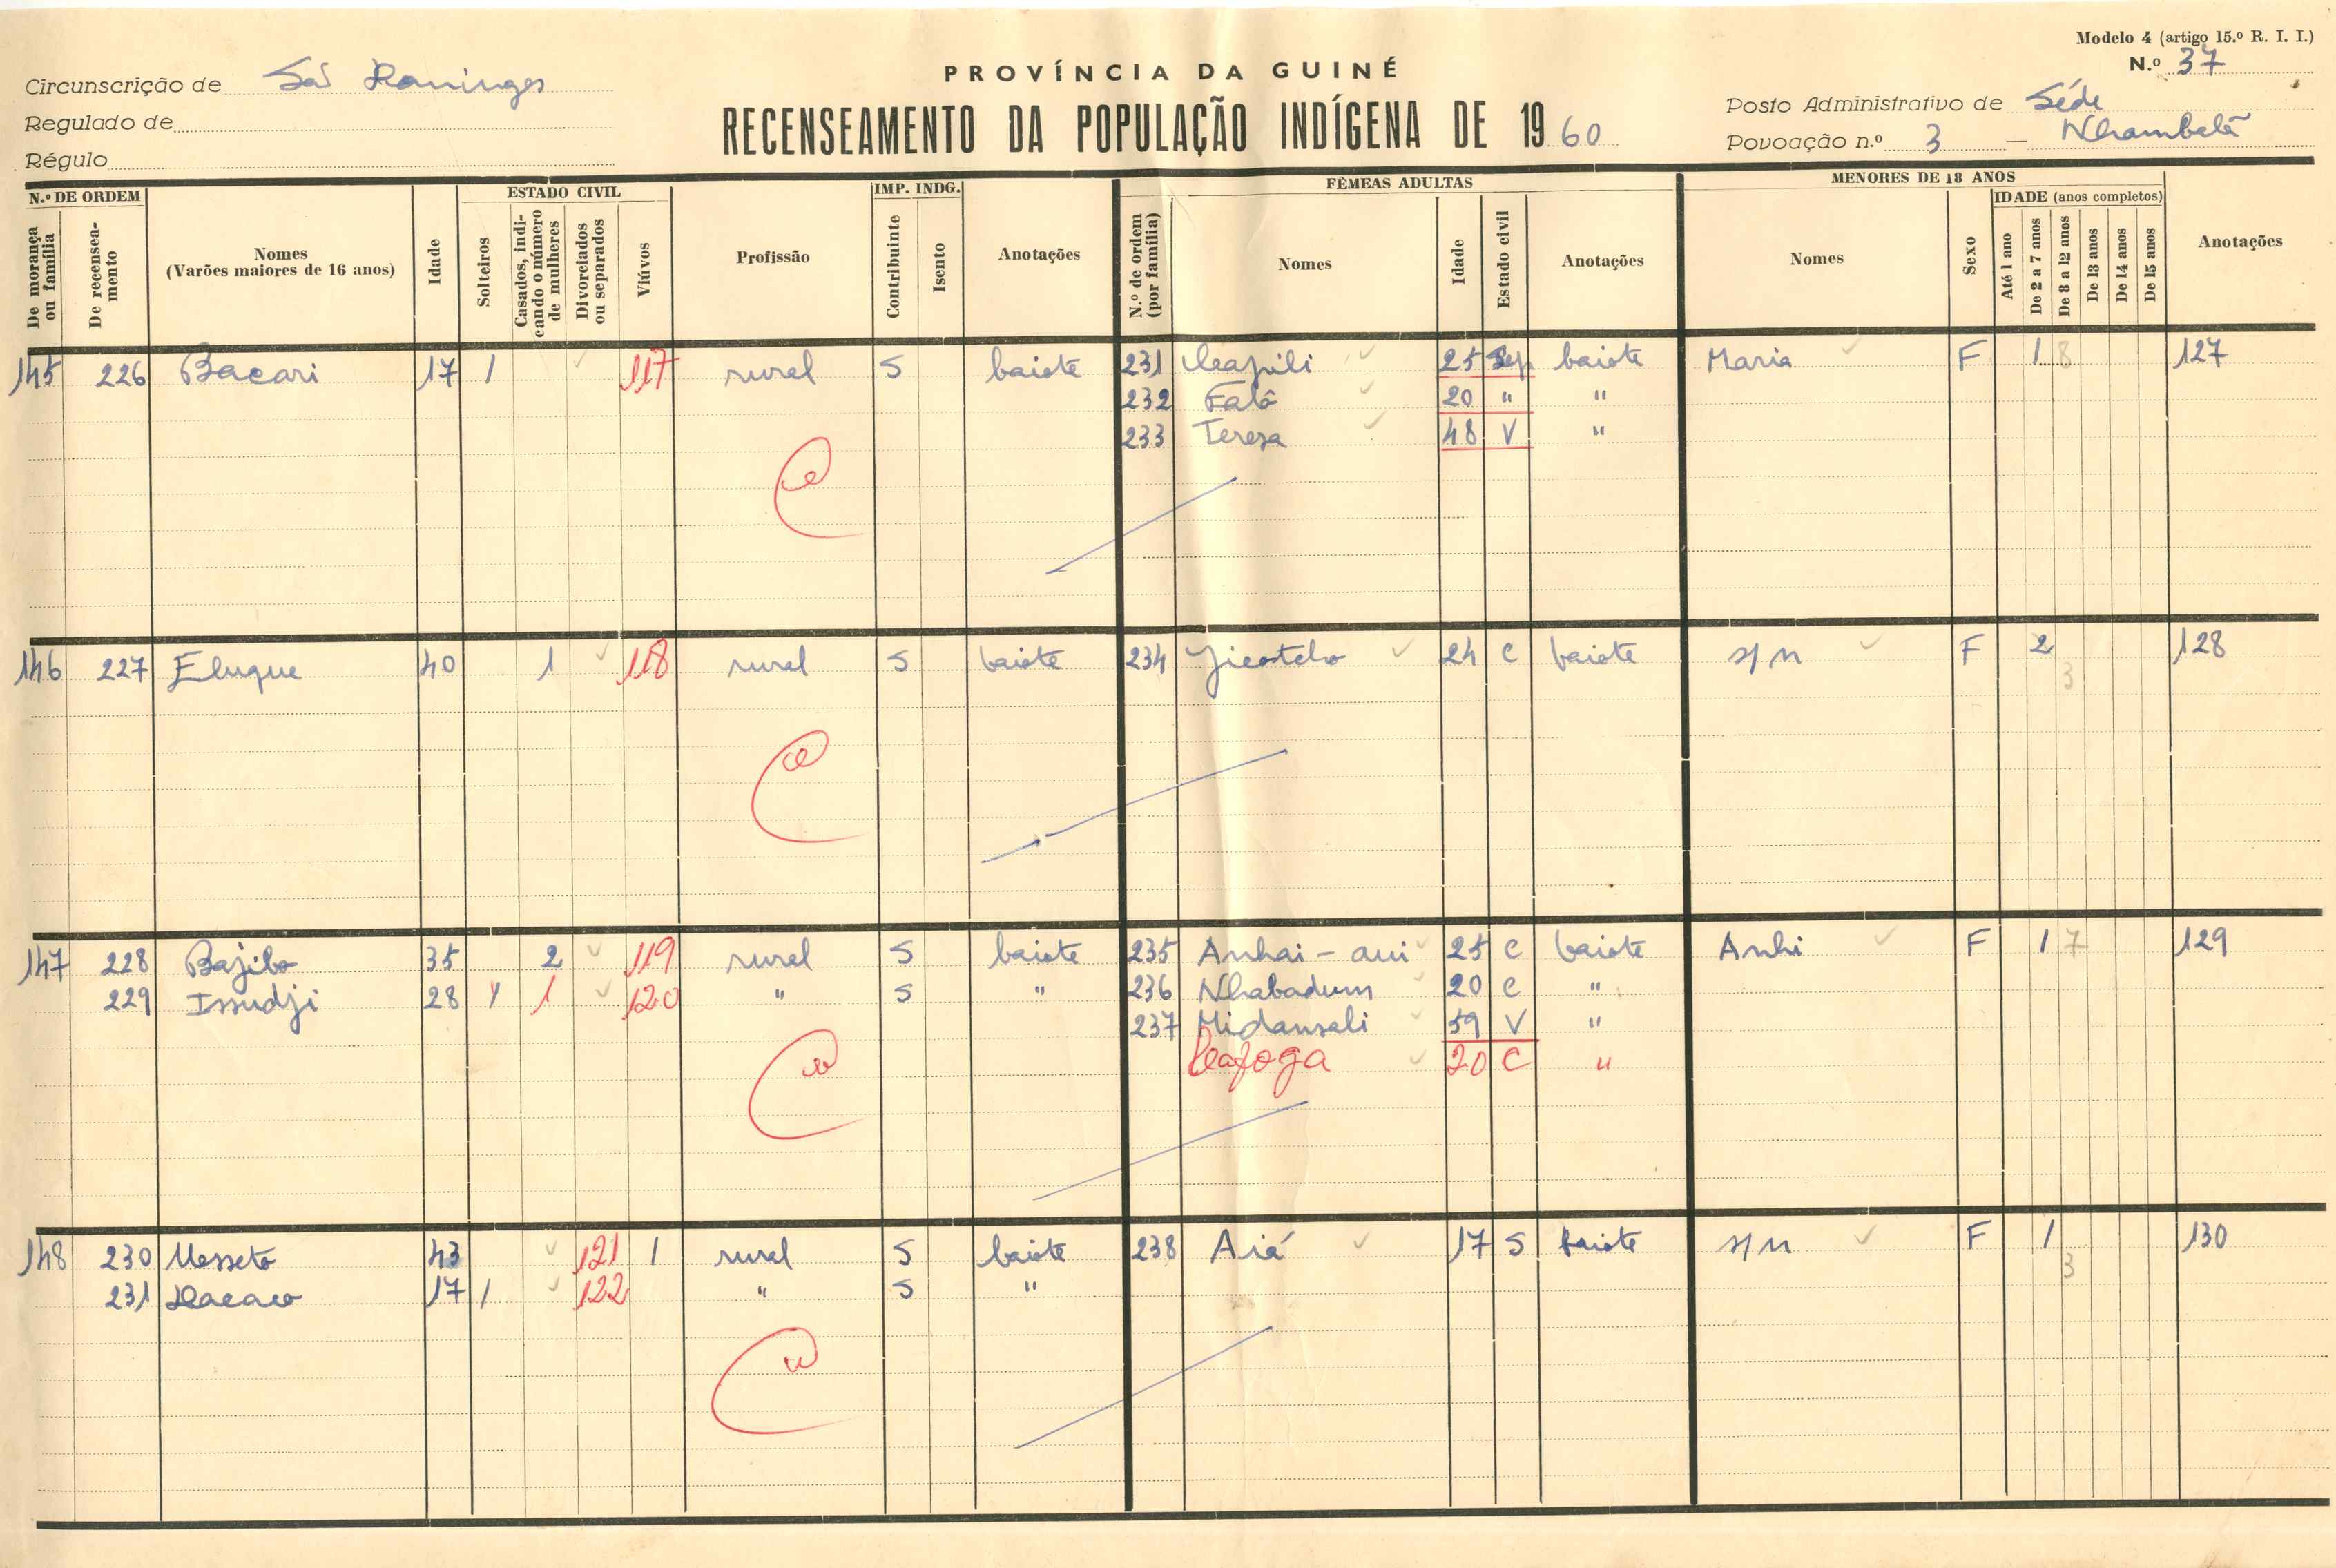 Modelo 4 (artigo 15.º R. I. I.)
N.º 37
PROVÍNCIA DA GUINÉ
RECENSEAMENTO DA POPULAÇÃO INDÍGENA DE 1960
Circunscrição de São Domingos
Regulado de
Régulo
Posto Administrativo de Séde
Povoação n.º 3 — Nhambalã
N.º DE ORDEM
De morança ou família
De recensea-mento
Nomes
(Varões maiores de 16 anos)
Idade
ESTADO CIVIL
Solteiros
Casados, indi-cando o número de mulheres
Divorciados ou separados
Viúvos
Profissão
IMP. INDG.
Contribuinte
Isento
Anotações
FÊMEAS ADULTAS
N.º de ordem (por família)
Nomes
Idade
Estado civil
Anotações
MENORES DE 18 ANOS
Nomes
Sexo
IDADE (anos completos)
Até 1 ano
De 2 a 7 anos
De 8 a 12 anos
De 13 anos
De 14 anos
De 15 anos
Anotações
145 226 Bacari 17 1 117 rural S baiote 231 25 Sep baiote Maria F 1 8 127
232 Falô 20 " "
233 Teresa 48 V "
146 227 Eluque 40 1 118 rural S baiote 234 24 C baiote s/n F 2 3 128
147 228 Bajibo 35 2 119 rural S baiote 235 Anhai-aui 25 C baiote Anhi F 1 7 129
229 Issudji 28 1 1 120 " S " 236 Nhabadum 20 C "
237 Midansali 59 V "
Cafoga 20 C "
148 230 Messeto 43 121 1 rural S baiote 238 Aiá 17 S baiote s/n F 1 3 130
231 17 1 122 " S "